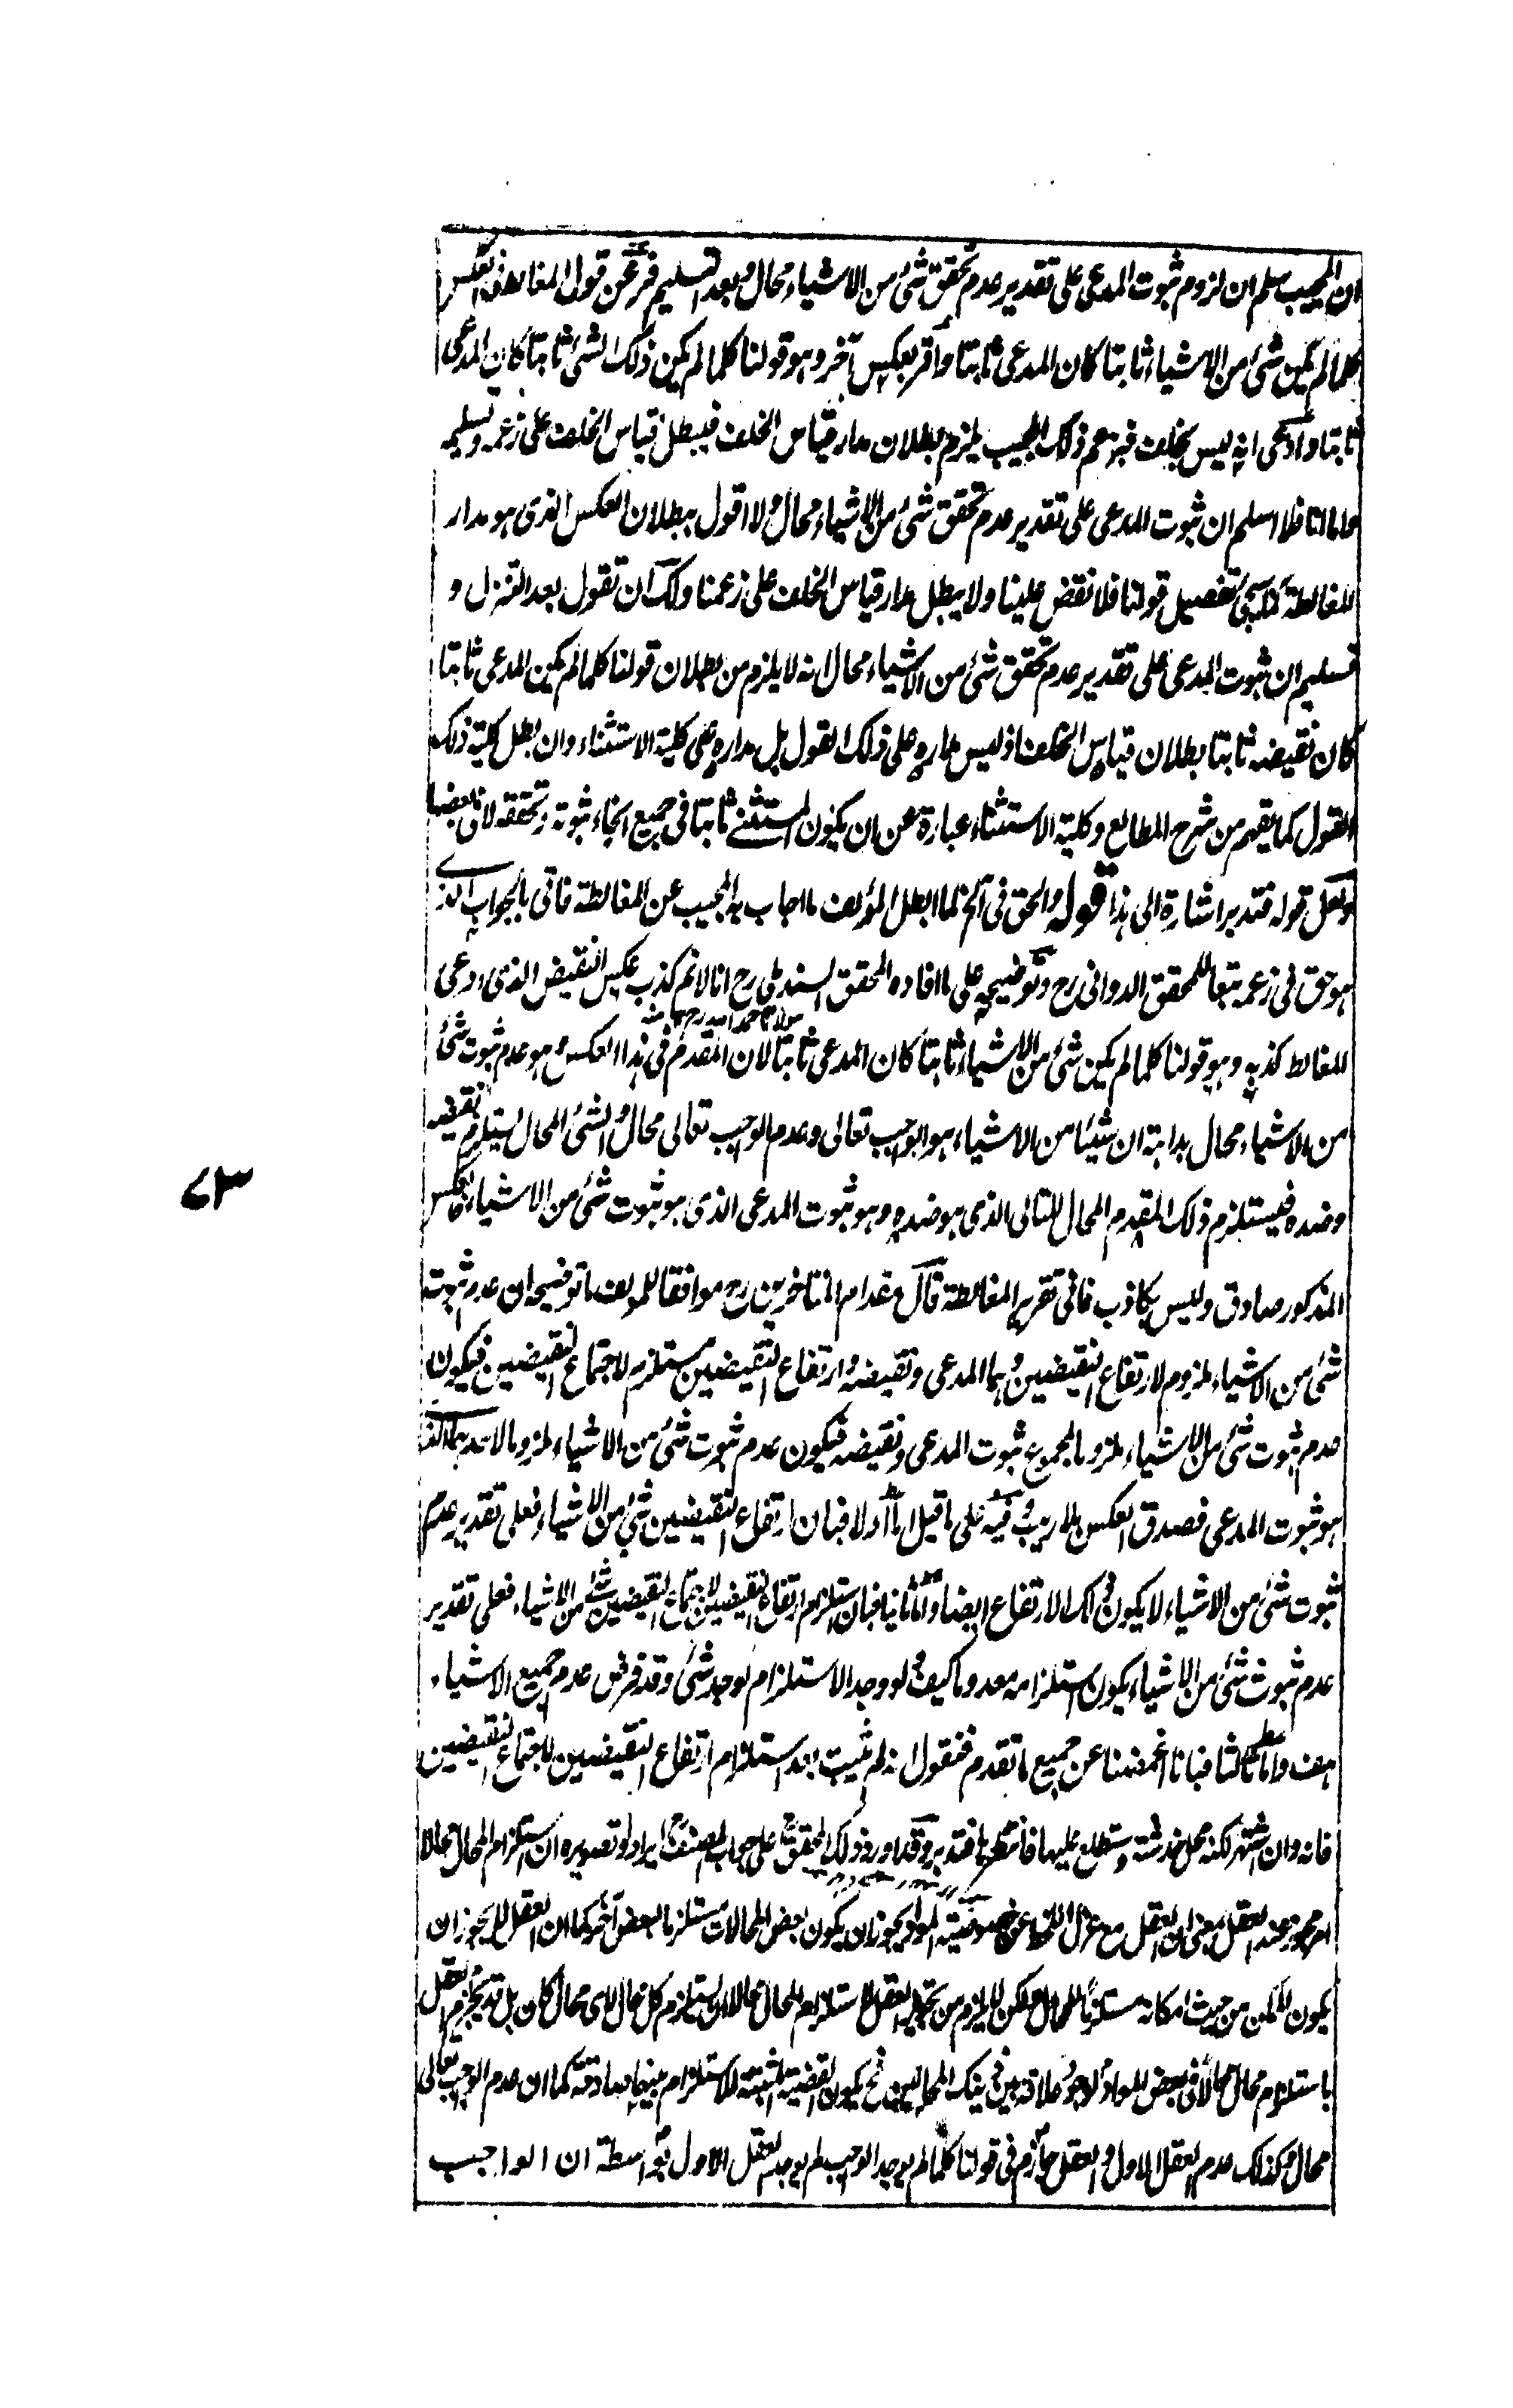 ان المجيب سلم ان لزوم ثبوت المدعى على تقدير عدم تحقق شئ من الاشياء محال وبعد التسليم فرع عن قول المغالط فى العكس
كلما لم يكن شئ من الاشياء ثابتا كان المدعى ثابتا واقر بعكس آخر وهو قولنا كلما لم يكن ذلك الشئ ثابتا كان المدعى
ثابتا وادعى انه ليس بخلف فبزعم ذلك المجيب يلزم بطلان مدار قياس الخلف فيبطل قياس الخلف على زعمه وتسليمه
واما انا فلا اسلم ان ثبوت المدعى على تقدير عدم تحقق شئ من الاشياء محال ولا اقول ببطلان العكس الذى هو مدار
للمغالطة كما سيجئ تفصيل قولنا فلا نقض علينا ولا يبطل مدار قياس الخلف على زعمنا ولك ان تقول بعد التنزل و
تسليم ان ثبوت المدعى على تقدير عدم تحقق شئ من الاشياء محال انه لا يلزم من بطلان قولنا كلما لم يكن المدعى ثابتا
كان نقيضه ثابتا بطلان قياس الخلف اذ ليس مداره على ذلك القول بل مداره على كلية الاستثناء وان بطل كلية ذلك
القول كما يفهم من شرح المطالع وكلية الاستثناء عبارة عن ان يكون المستثنى ثابتا فى جميع انحاء ثبوته وتحققه لا فى بعضها
ولعل قوله فتدبر اشارة الى هذا قوله والحق فى الخ لما ابطل المؤلف ما اجاب به المجيب عن المغالطة فاتى بالجواب الذى
هو حق فى زعمه تبعا للمحقق الدوانى رح وتوضيحه على ما افاده المحقق السنديلى رح انا لا نم كذب عكس النقيض الذى ادعى
المغالط كذبه وهو قولنا كلما لم يكن شئ من الاشياء ثابتا كان المدعى ثابتا لان المقدم فى هذا العكس وهو عدم ثبوت شئ
من الاشياء محال بداهة ان شيئا من الاشياء هو الواجب تعالى وعدم الواجب تعالى محال والشئ المحال يستلزم نقيضه
وضده فيستلزم ذلك المقدم المحال للتالى الذى هو ضده وهو ثبوت المدعى الذى هو ثبوت شئ من الاشياء فالعكس
المذكور صادق وليس بكاذب فافى تقرير المغالطة قال مقدام المتاخرين رح موافقا للمؤلف ما توضيحه ان عدم ثبوت
شئ من الاشياء ملزوم لارتفاع النقيضين وهما المدعى ونقيضه وارتفاع النقيضين مستلزم لاجتماع النقيضين فيكون
عدم ثبوت شئ من الاشياء ملزوما لمجموع ثبوت المدعى ونقيضه فيكون عدم ثبوت شئ من الاشياء ملزوما لاحدهما الذى
هو ثبوت المدعى فصدق العكس بلا ريب وفيه على ما قيل اما اولا فبان ارتفاع النقيضين شئ من الاشياء فعلى تقدير عدم
ثبوت شئ من الاشياء لا يكون ذلك الارتفاع ايضا واما ثانيا فبان استلزام ارتفاع النقيضين لاجتماع النقيضين شئ من الاشياء فعلى تقدير
عدم ثبوت شئ من الاشياء يكون استلزامه معدوما كيف ولو وجد الاستلزام لوجد شئ وقد فرض عدم جميع الاشياء
هف واما ثالثا فبانا اغمضنا عن جميع ما تقدم فنقول انه لم يثبت بعد استلزام ارتفاع النقيضين لاجتماع النقيضين
فانه وان اشتهر لكنه محل خدشة وستطلع عليها فانتظرها فتدبر وقد اورد ذلك المحقق على جواب المصنف ايرادا وتصويره ان استلزام المحال محالا
امر مجوز عند العقل بمعنى ان العقل مع عزل اللحاظ عن خصوصية المواد يجوز ان يكون بعض المحالات مستلزما لبعض آخر كما ان العقل لا يجوز ان
يكون الممكن من حيث امكانه مستلزما للمحال ولكن لا يلزم من تجويز العقل استلزام المحال محالا ان يستلزم كل محال لاى محال كان بل قد يجزم العقل
باستلزام محال محالا فى بعض المواد لوجود علاقة بين ذينك المحالين فح يكون القضية المثبتة للاستلزام بينهما صادقة كما ان عدم الواجب تعالى
محال وكذلك عدم العقل الاول والعقل جازم فى قولنا كلما لم يوجد الواجب لم يوجد العقل الاول بواسطة ان الواجب
٧٣